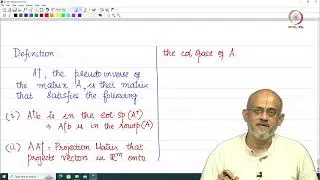 Definition
A†, the pseudoinverse of
the matrix A, is that matrix
that satisfies the following
(i) A†b is in the col. sp(Aᵀ)
⇒ A†b is in the rowsp(A)
(ii) AA† = Projection Matrix that
projects vectors in ℝᵐ onto
the col. space of A.